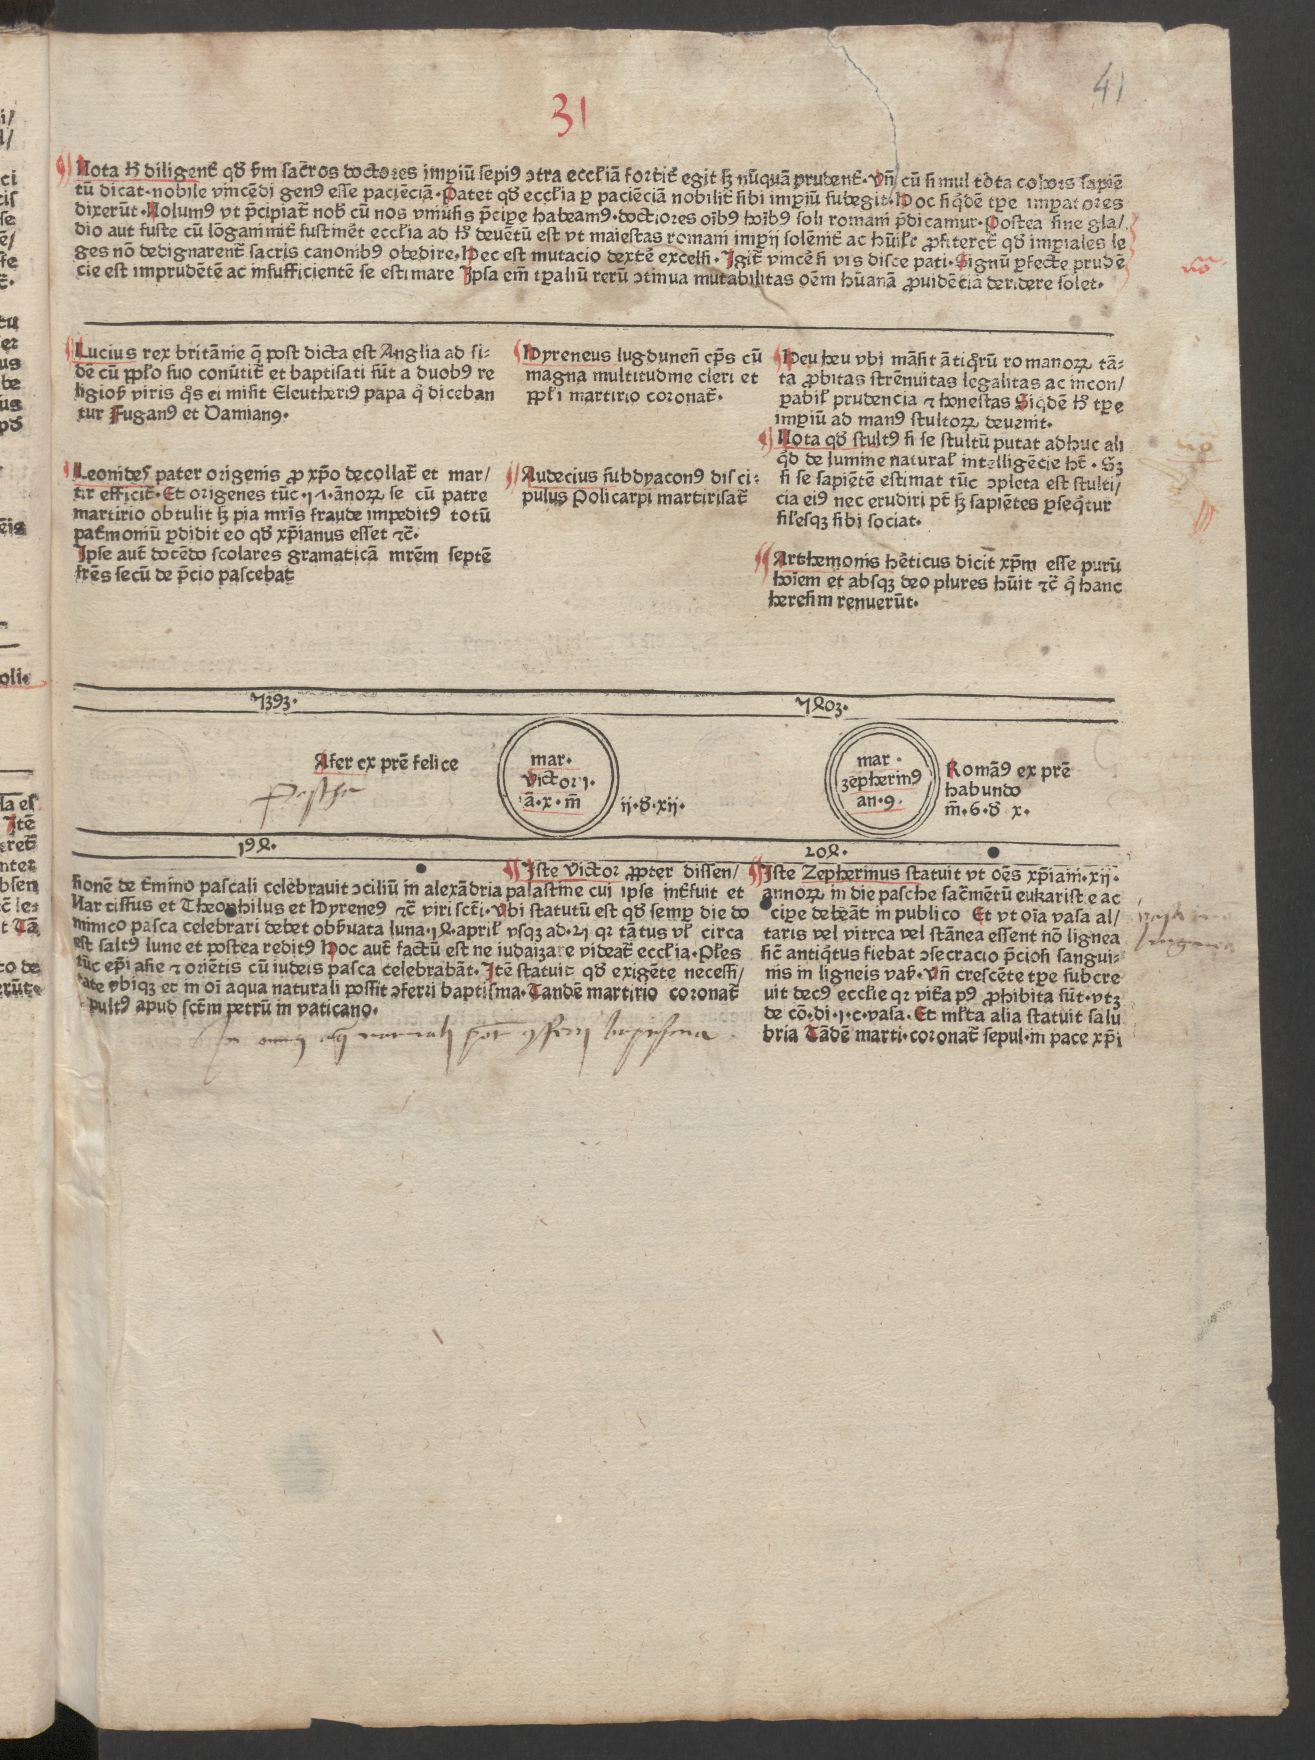 41
31
Nota hͦ diligent̄ qđ ẜm sac̄ros doctores impiū sepiꝰ ↄtra eccłiā fortit̄ egit ꝫ nūquā prudent̄. Vn̄ cū simul tota cohors sapiē
tū dicat. nobile vincēdi genꝰ esse paciēciā. Patet qđ eccłia ꝑ paciēciā nobilit̄ sibi impiū subegit. Hoc siq̇dē tpe imp̱atores
dixerūt. Nolumꝰ vt p̄cipiat̄ nob̄ cū nos vniusis p̄cipe habeamꝰ. doctiores oībꝰ hoībꝰ soli romani p̄dicamur. Postea sine gla/
dio aut fuste cū lōganimit̄ sustinēt eccłia ad hͦ deuētū est vt maiestas romani imp̱ij solēnit̄ ac hūilr̄ ꝓfiteret̄ qđ imp̱iales le
ges nō dedignarent̄ sacris canonibꝰ obedire. Hec est mutacio dextē excelsi. Igit̄ vincē si vis disce pati. Signū ꝑfecte prudē
cie est imprudētē ac insufficientē se estimare Ipsa em̄ tp̱aliū rerū ↄtinua mutabilitas oēm hūanā ꝓuidēciā deridere solet.
Lucius rex britānie q̄ post dicta est Anglia ad fi-
dē cū pp̄lo suo conūtit̄ et baptisati sūt a duobꝰ re
ligios̄ viris q̇s ei misit Eleutheriꝰ papa q̇ diceban
tur Fuganꝰ et Damianꝰ.
Leonides pater origenis ꝓ xp̄o decollat̄ et mar/
tir efficit̄. Et origenes tūc .17. ānoꝝ se cū patre
martirio obtulit ꝫ pia mr̄is fraude impeditꝰ totū
pat̄moniū ꝑdidit eo qđ xp̄ianus esset ⁊c̄.
Ipse aut̄ docēdo scolares gramaticā mr̄em septē
fr̄es secū de p̄cio pascebat
Hyreneus lugdunen̄ ep̄s cū
magna multitudine cleri et
pp̄li martirio coronat̄.
Audecius subdyaconꝰ disci-
pulus Policarpi martirisat̄
Heu heu vbi māsit ātiq̇rū romanoꝝ tā-
ta ꝓbitas strēnuitas legalitas ac incon/
ꝑabil̄ prudencia ⁊ honestas Siq̇dē hͦ tp̱e
imp̱iū ad manꝰ stultoꝝ deuenit.
Nota qđ stultꝰ si se stultū putat adhuc ali
q̇d de lumine natural̄ intelligēcie ht̄. Sꝫ
si se sapiētē estimat tūc ↄpleta est stulti/
cia eiꝰ nec erudiri pt̄ ꝫ sapiētes ꝑseq̇tur
sil̄esqꝫ sibi sociat.
Arthemonis hēticus dicit xp̄m esse purū
hoīem et absqꝫ deo plures hūit ⁊c̄ q̇ hanc
heresim renuerūt.
7393.
7403.
Afer ex pr̄e felice
pascha
mar.
victor 1.
ā. x. m̄
ij. đ. xij.
mar.
zepherinꝰ
an. 9.
Romāꝰ ex pr̄e
habundo
m̄. 6. đ x.
194.
204.
Iste Victor ꝓpter dissen/
sionē de t̄mino pascali celebrauit ↄciliū in alexādria palastine cui ipse int̄fuit et
Narcissus et Theophilus et Hyreneꝰ ⁊c̄ viri sct̄i. Vbi statutū est qđ semꝑ die do
minico pasca celebrari debet obs̄uata luna .14. april̄ vsqꝫ ad .21 qꝛ tātus vl̄ circa
est saltꝰ lune et postea reditꝰ Hoc aut̄ factū est ne iudaizare videat̄ eccłia. Pl̄es
tūc ep̄i asie ⁊ oriētis cū iudeis pasca celebrabāt. Itē statuit qđ exigēte necessi/
tate vbiqꝫ et in oī aqua naturali possit ↄferri baptisma. Tandē martirio coronat̄
pultꝰ apud sct̄m petrū in vaticano.
In omni aq̄ naturali pot̄ ↄferri baptisma
Iste Zepherinus statuit vt oēs xp̄iani .xij.
annoꝝ in die pasche sac̄mētū eukaristie ac
cipe debeāt in publico Et vt oīa vasa al/
taris vel vitrea vel stānea essent nō lignea
sic̄ antiq̇tus fiebat ↄsecracio p̄ciosi sangui-
nis in ligneis vas̄. Vn̄ crescēte tp̱e subcre
uit decꝰ ecclīe qꝛ vit̄a pꝰ ꝓhibita sūt. vtꝫ
de cō. di. 1. c. vasa. Et ml̄ta alia statuit salu
bria Tādē marti. coronat̄ sepul. in pace xp̄i